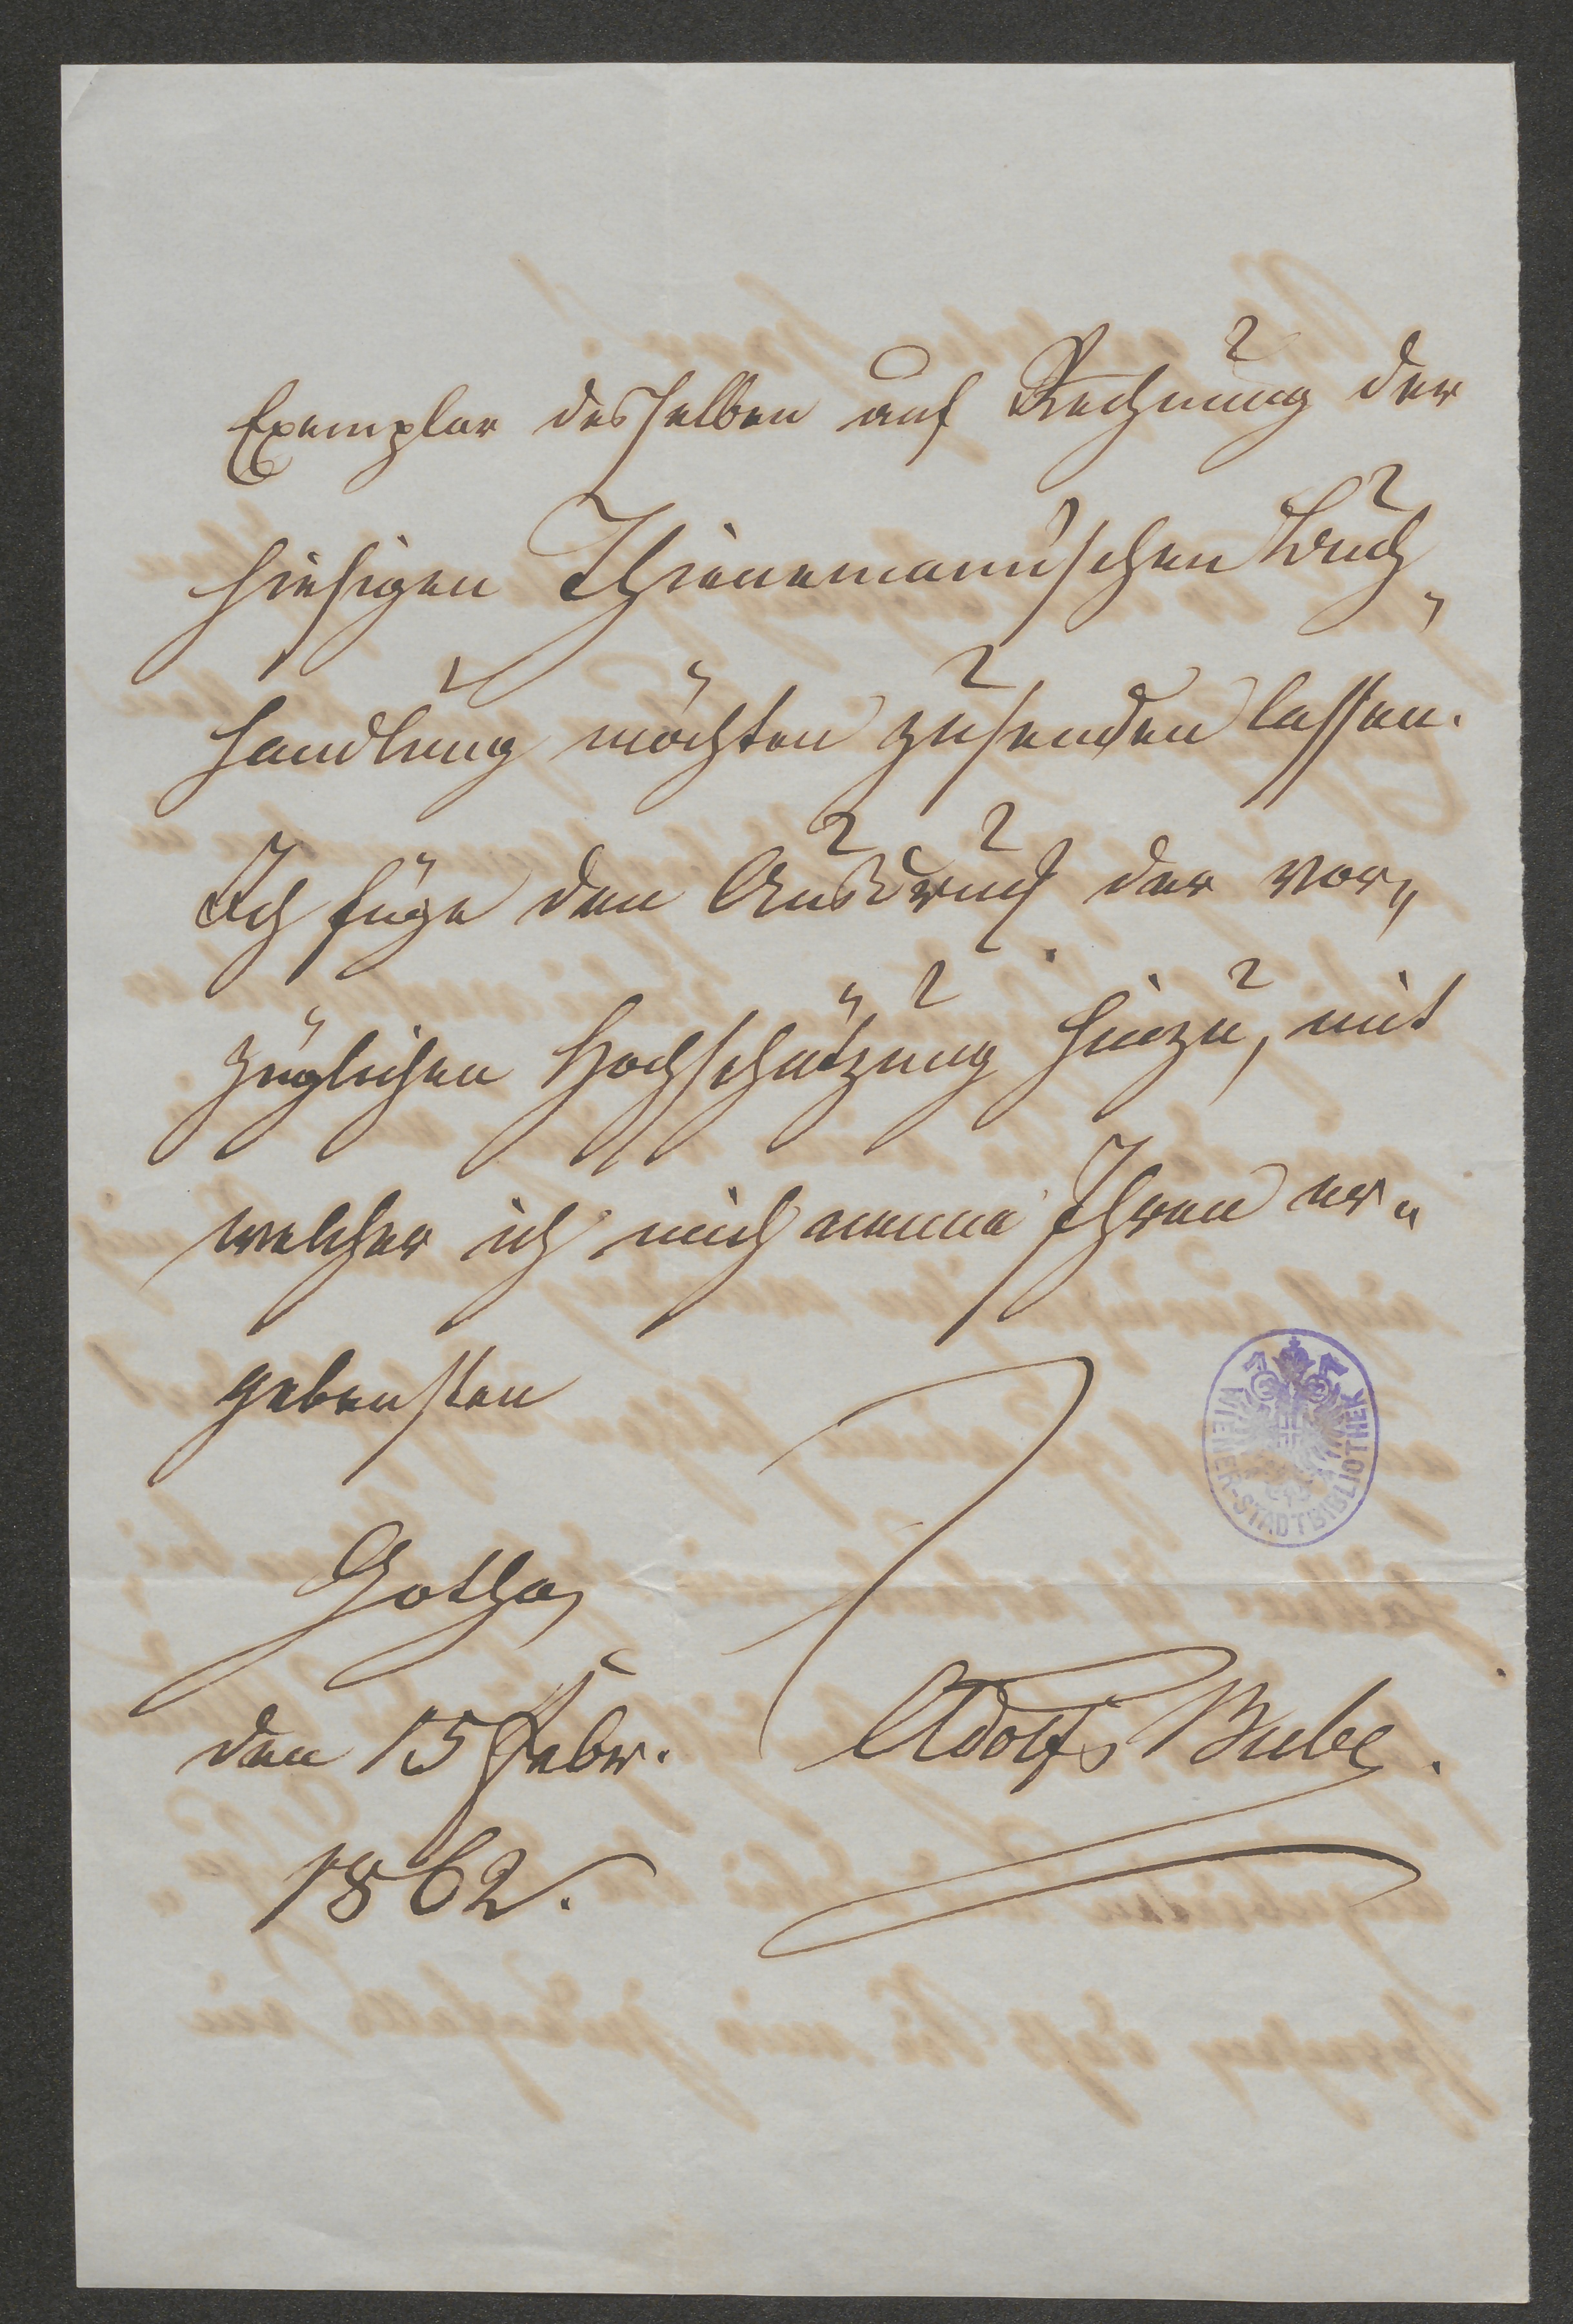 Exemplar desselben auf Rechnung der
hiesigen Thienemann'schen Buch-
handlung möchten zusenden lassen.
Ich füge den Ausdruck der vor-
züglichen Hochschätzung hinzu, mit
welcher ich mich nenne Ihren er-
gebensten
Gotha,
den 15 Febr.
1862.
Adolf Bube.
WIENER-STADTBIBLIOTHEK